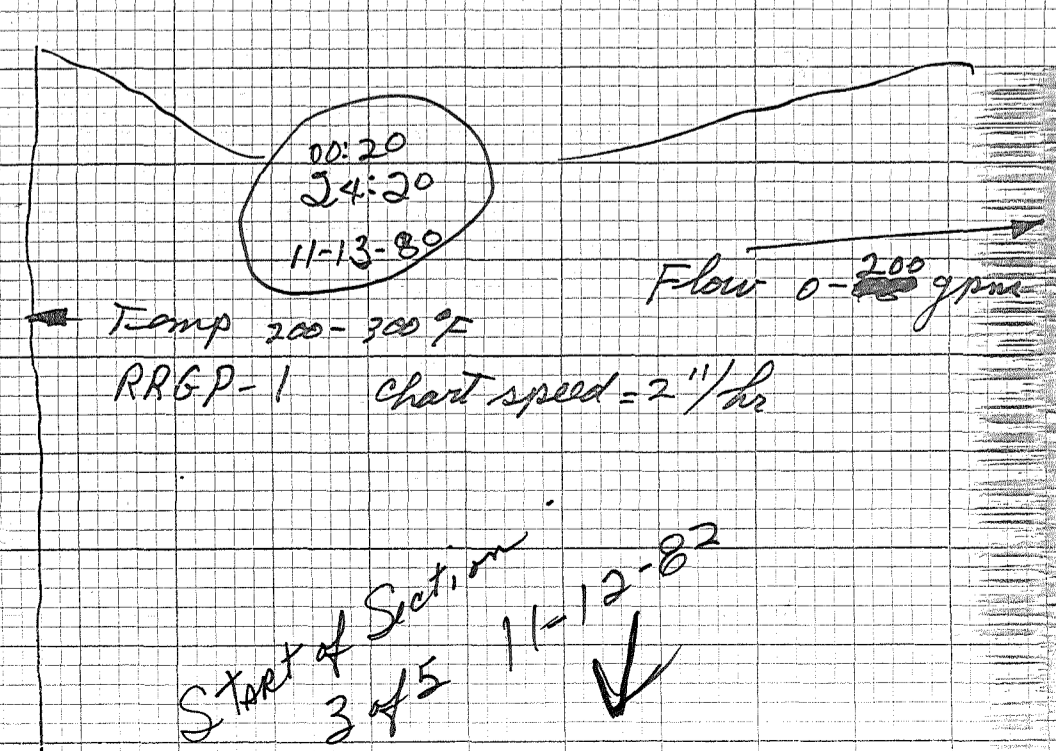 00:20
24:20
11-13-80
Flow 0-200 gpm
Temp 200-300°F
RRGP-1 chart speed = 2"/hr
START of Section
3 of 5
11-12-82